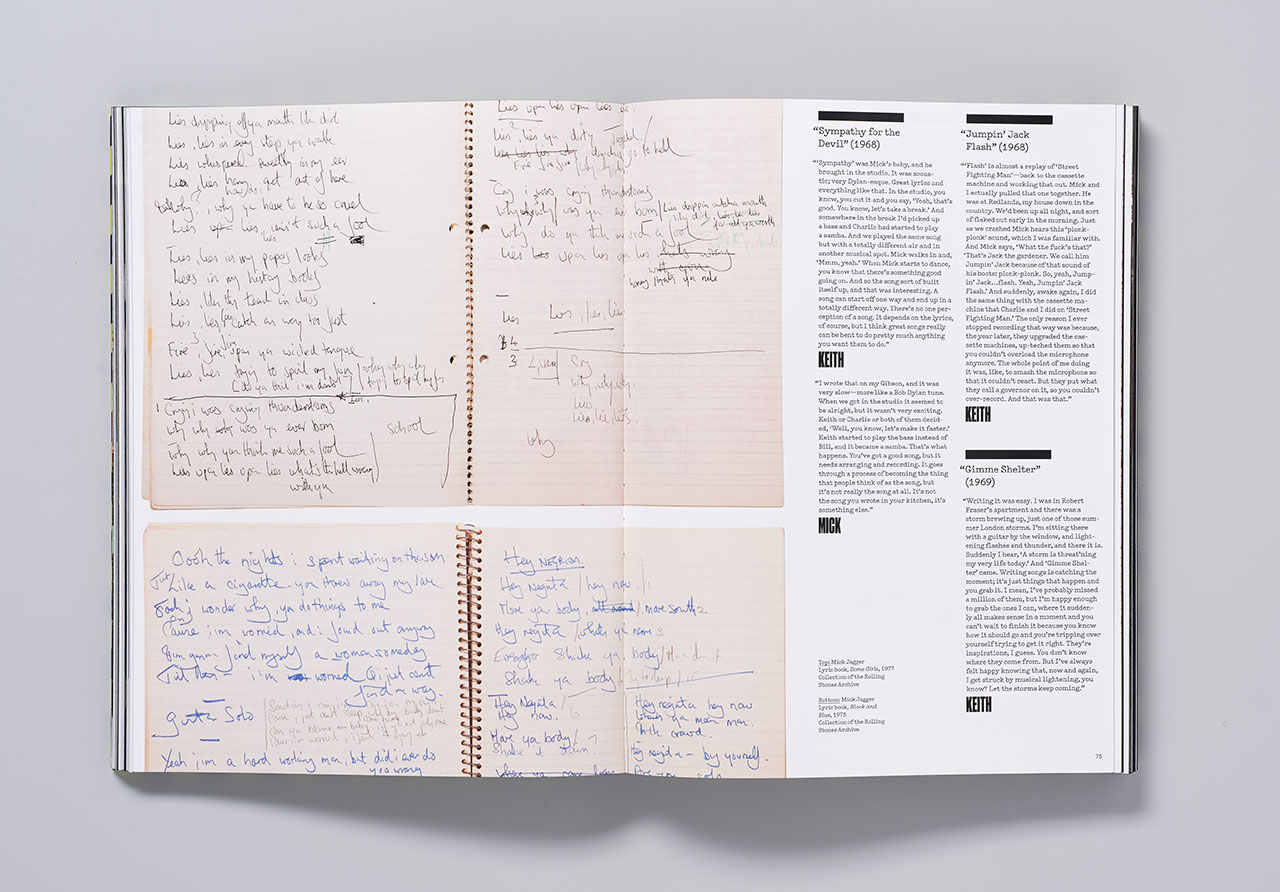 Lies dripping off ya mouth like dirt
Lies, lies in every step you walk
Lies whispered sweetly in my ear
Lies, lies how do i get out of here
Why, why ya have to be so cruel
Lies lies, lies such a fool
Lies, lies in my papers looks
Lies in my history books
Lies, like they teach in class
Lies, lies catch on way too fast
Fire, fire upon ya wicked tongue
Lies, lies trying to spoil my fun
Cryin i was crying thunderstorms
why why was ya ever born
Why why you think me such a fool
Lies upon lies upon lies what's the hell wrong
with ya
school
Lies upon lies upon lies
Lies, lies ya dirty
go to hell
Cry i was crying thunderstorms
was ya ever born
Lies drippin outcha mouth
like dirt, lies lies
why do ya think me such a fool
Lies upon lies upon lies
wrong
Lies
Lies, lies, lies
3
why, why, why
Lies, lies, lies.
why
Oooh the nights i spent waiting on the son
Like a cigarette you threw away my love
Oooh i wonder why, ya do things to me
Cause i'm worried, and i found out anyway
find myself a woman someday
Till then i'm worried & i just cant
find a way.
guitar Solo
Yeah i'm a hard working man, but did i ever do
you wrong
Hey NEGRITA
Hey Negrita / hey now
Move ya body, / move South 2
Hey negrita / whats ya name 3
Shake ya body
Shake ya body
Hey Negrita /
Hey now.
Move ya body /
Shake it
Hey negrita hey now
Hey negrita - by yourself.
“Sympathy for the
Devil” (1968)
“‘Sympathy’ was Mick’s baby, and he
brought in the studio. It was acous-
tic; very Dylan-esque. Great lyrics and
everything like that. In the studio, you
know, you cut it and you say, ‘Yeah, that’s
good. You know, let’s take a break.’ And
somewhere in the break I’d picked up
a bass and Charlie had started to play
a samba. And we played the same song
but with a totally different air and in
another musical spot. Mick walks in and,
‘Mmm, yeah.’ When Mick starts to dance,
you know that there’s something good
going on. And so the song sort of built
itself up, and that was interesting. A
song can start off one way and end up in a
totally different way. There’s no one per-
ception of a song. It depends on the lyrics,
of course, but I think great songs really
can be bent to do pretty much anything
you want them to do.”
KEITH
“I wrote that on my Gibson, and it was
very slow—more like a Bob Dylan tune.
When we got in the studio it seemed to
be alright, but it wasn’t very exciting.
Keith or Charlie or both of them decid-
ed, ‘Well, you know, let’s make it faster.’
Keith started to play the bass instead of
Bill, and it became a samba. That’s what
happens. You’ve got a good song, but it
needs arranging and recording. It goes
through a process of becoming the thing
that people think of as the song, but
it’s not really the song at all. It’s not
the song you wrote in your kitchen, it’s
something else.”
MICK
Top: Mick Jagger
Lyric book, Some Girls, 1977
Collection of the Rolling
Stones Archive
Bottom: Mick Jagger
Lyric book, Black and
Blue, 1975
Collection of the Rolling
Stones Archive
“Jumpin’ Jack
Flash” (1968)
“‘Flash’ is almost a replay of ‘Street
Fighting Man’—back to the cassette
machine and working that out. Mick and
I actually pulled that one together. He
was at Redlands, my house down in the
country. We’d been up all night, and sort
of flaked out early in the morning. Just
as we crashed Mick hears this ‘plonk-
plonk’ sound, which I was familiar with.
And Mick says, ‘What the fuck’s that?’
‘That’s Jack the gardener. We call him
Jumpin’ Jack because of that sound of
his boots: plonk-plonk. So, yeah, Jump-
in’ Jack...flash. Yeah, Jumpin’ Jack
Flash.’ And suddenly, awake again, I did
the same thing with the cassette ma-
chine that Charlie and I did on ‘Street
Fighting Man.’ The only reason I ever
stopped recording that way was because,
the year later, they upgraded the cas-
sette machines, up-teched them so that
you couldn’t overload the microphone
anymore. The whole point of me doing
it was, like, to smash the microphone so
that it couldn’t react. But they put what
they call a governor on it, so you couldn’t
over-record. And that was that.”
KEITH
“Gimme Shelter”
(1969)
“Writing it was easy. I was in Robert
Fraser’s apartment and there was a
storm brewing up, just one of those sum-
mer London storms. I’m sitting there
with a guitar by the window, and light-
ening flashes and thunder, and there it is.
Suddenly I hear, ‘A storm is threat’ning
my very life today.’ And ‘Gimme Shel-
ter’ came. Writing songs is catching the
moment; it’s just things that happen and
you grab it. I mean, I’ve probably missed
a million of them, but I’m happy enough
to grab the ones I can, where it sudden-
ly all makes sense in a moment and you
can’t wait to finish it because you know
how it should go and you’re tripping over
yourself trying to get it right. They’re
inspirations, I guess. You don’t know
where they come from. But I’ve always
felt happy knowing that, now and again,
I get struck by musical lightening, you
know? Let the storms keep coming.”
KEITH
75